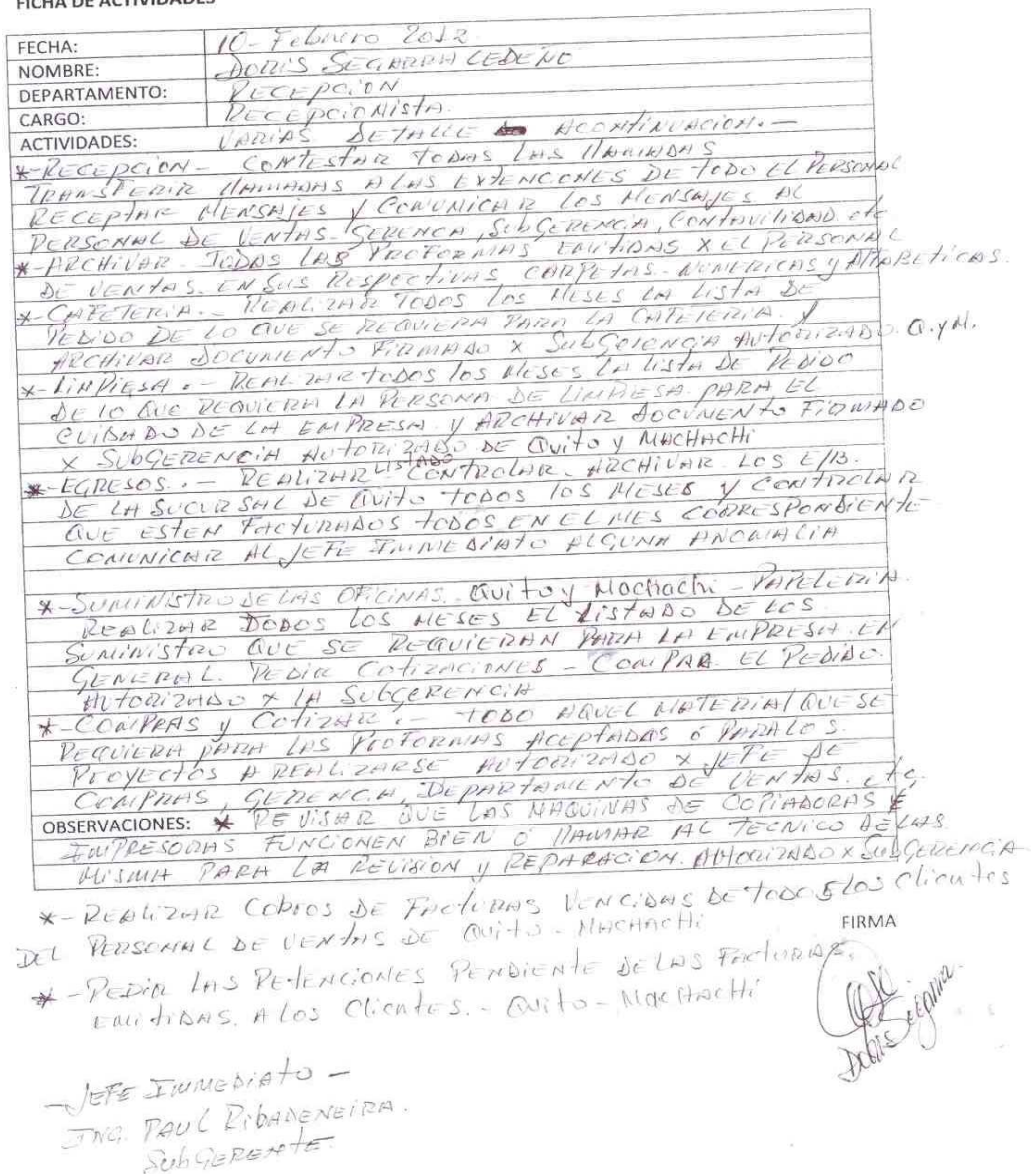 FICHA DE ACTIVIDADES
FECHA: 10-Febrero 2012.
NOMBRE: DORIS SEGARRA CEDEÑO
DEPARTAMENTO: RECEPCION
CARGO: RECEPCIONISTA.
ACTIVIDADES: VARIAS DETALLE ACONTINUACION.-
*-RECEPCION- CONTESTAR TODAS LAS llAMADAS
TRANSFERIR llAMADAS A LAS EXTENCIONES DE TODO EL PERSONAL
RECEPTAR MENSAJES Y COMUNICAR LOS MENSAJES AL
PERSONAL DE VENTAS-GERENCIA, SubGERENCIA, CONTAVILIDAD. etc
*-ARCHIVAR. TODAS LAS PROFORMAS EMITIDAS X EL PERSONAL
DE VENTAS. EN SUS RESPECTIVAS CARPETAS-NUMERICAS y AlFABETICAS.
*-CAFETERIA.- REALIZAR TODOS los MESES LA LISTA DE
PEDIDO DE LO QUE SE REQUIERA PARA LA CAFETERIA. Y
ARCHIVAR DOCUMENTO FIRMADO X SubGERENCIA AUTORIZADO. Q.yM.
*-LIMPIESA.- REALIZAR todos los MESES LA lista DE PEDIDO
DE lo QUE REQUIERA LA PERSONA DE LIMPIESA. PARA EL
CUIDADO DE LA EMPRESA. Y ARCHIVAR DOCUMENTO FIRMADO
X SUBGERENCIA AUTORIZADO DE Quito y MACHACHI
*-EGRESOS.- REALIZAR LISTADO CONTROLAR. ARCHIVAR. LOS E/B.
DE LA SUCURSAL DE QUITO TODOS los MESES Y CONTROLAR
QUE ESTEN FACTURADOS todos EN EL MES CORRESPONDIENTE
COMUNICAR AL JEFE INMEDIATO ALGUNA ANOMALIA
*-SUMINISTRO DE LAS OFICINAS. Quito y Machachi - PAPELERIA.
REALIZAR DODOS LOS MESES EL LISTADO DE LOS
SUMINISTRO QUE SE REQUIERAN PARA LA EMPRESA. EN
GENERAL. PEDIR COTIZACIONES - COMPAR. EL PEDIDO.
AUTORIZADO X LA SUBGERENCIA
*-COMPRAS y COTIZAR.- TODO AQUEL MATERIAl QUE SE
REQUIERA PARA LAS PROFORMAS ACEPTADAS ó PARA LOS
PROYECTOS A REALIZARSE AUTORIZADO X JEFE DE
COMPRAS, GERENCIA, DEPARTAMENTO DE VENTAS. etc.
OBSERVACIONES: * REVISAR QUE LAS MAQUINAS DE COPIADORAS E
IMPRESORAS FUNCIONEN BIEN ó llAMAR AL TECNICO DE LAS
MISMA PARA LA REVISION y REPARACION. AUTORIZADO X SubGERENCIA
*-REALIZAR COBROS DE FACTURAS VENCIDAS DE TODO S LOS Clientes
DEL PERSONAL DE VENTAS DE Quito - MACHACHI
FIRMA
*-PEDIR LAS RETENCIONES PENDIENTE DE LAS FACTURAS.
EMITIDAS. A LOS Clientes.- Quito - MACHACHI
Doris Segarra
-JEFE INMEDIATO-
ING. PAUL RIBADENEIRA.
SubGERENTE.